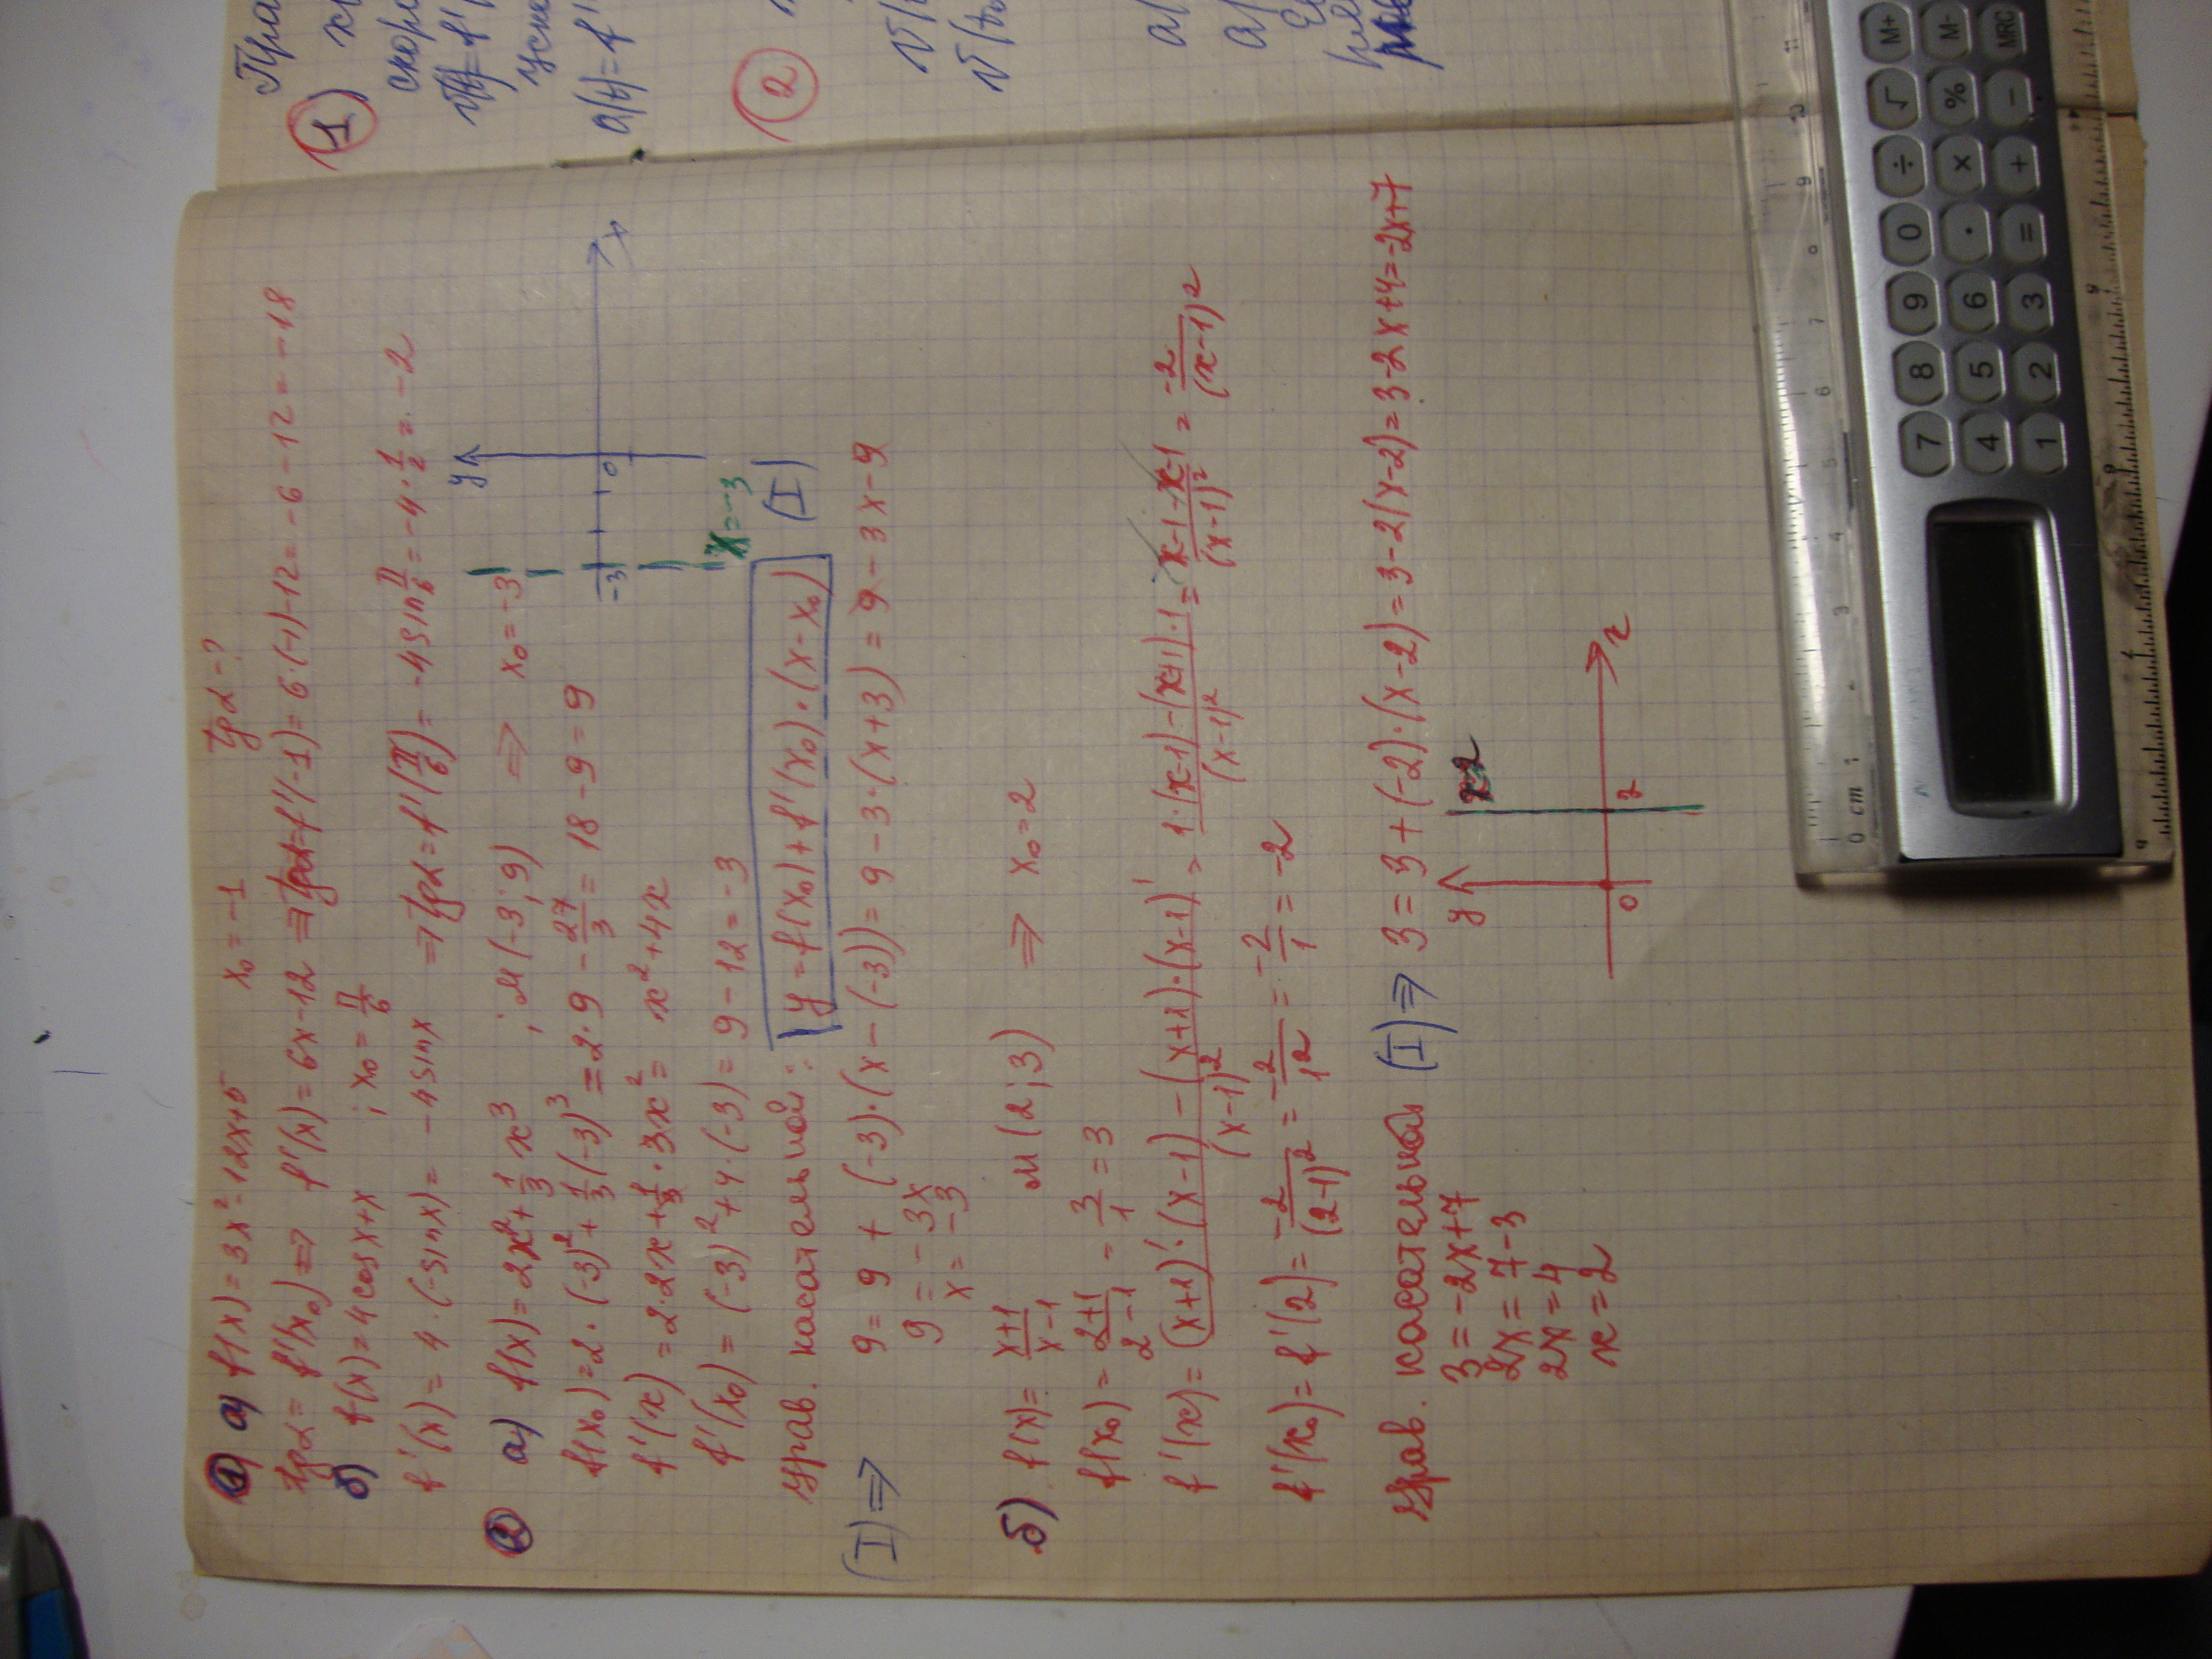 ① а) f(x) = 3x²-12x+5 x₀ = -1 tgα-?
tgα = f'(x₀) ⇒ f'(x) = 6x-12 ⇒ tgα = f'(-1) = 6·(-1)-12 = -6-12 = -18
б) f(x) = 4cosx+x ; x₀ = π/6
f'(x) = 4·(-sinx) = -4sinx ⇒ tgα = f'(π/6) = -4sin π/6 = -4·1/2 = -2
② а) f(x) = 2x²+1/3 x³ ; M(-3;9) ⇒ x₀ = -3
f(x₀) = 2·(-3)²+1/3(-3)³ = 2·9-27/3 = 18-9 = 9
f'(x) = 2·2x+1/3·3x² = x²+4x
f'(x₀) = (-3)²+4·(-3) = 9-12 = -3
y
-3 0
x
x=-3
урав. касательной: y = f(x₀)+f'(x₀)·(x-x₀) (I)
(I) ⇒ 9 = 9+(-3)·(x-(-3)) = 9-3·(x+3) = 9-3x-9
9 = -3x
x = -3
б) f(x) = x+1/x-1 M(2;3) ⇒ x₀ = 2
f(x₀) = 2+1/2-1 = 3/1 = 3
f'(x) = (x+1)'·(x-1)-(x+1)·(x-1)'/(x-1)² = 1·(x-1)-(x+1)·1/(x-1)² = x-1-x-1/(x-1)² = -2/(x-1)²
f'(x₀) = f'(2) = -2/(2-1)² = -2/1² = -2/1 = -2
урав. касательной (I) ⇒ 3 = 3+(-2)·(x-2) = 3-2(x-2) = 3-2x+4 = -2x+7
3 = -2x+7
2x = 7-3
2x = 4
x = 2
y
0 2
x
x=2
1)
скоро
②
0 cm 1 2 3 4 5 6 7 8 9 10 11
M+ M- MRC
√ % −
÷ × +
0 · =
9 6 3
8 5 2
7 4 1